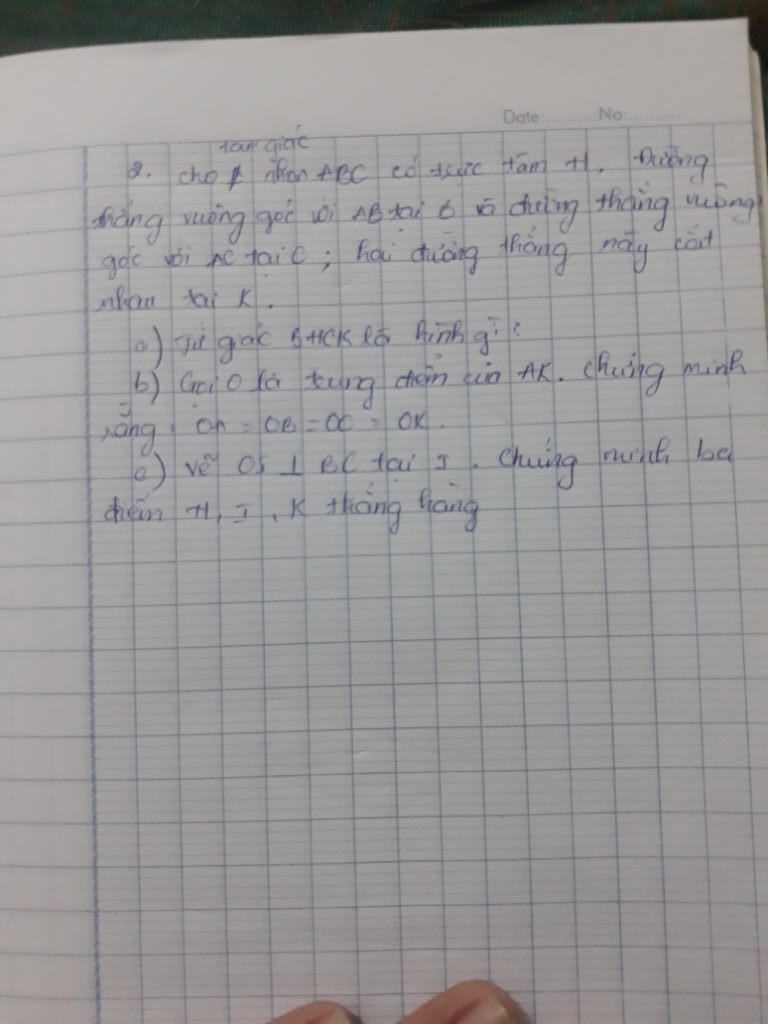 Date:..........No:..........
tam giác
2. cho nhọn ABC có trực tâm H. Đường
thẳng vuông góc với AB tại B và đường thẳng vuông
góc với AC tại C ; hai đường thẳng này cắt
nhau tại K.
a) Tứ giác BHCK là hình gì?
b) Gọi O là trung điểm của AK. Chứng minh
rằng OA = OB = OC = OK.
c) Vẽ OI ⊥ BC tại I. Chứng minh ba
điểm H, I, K thẳng hàng